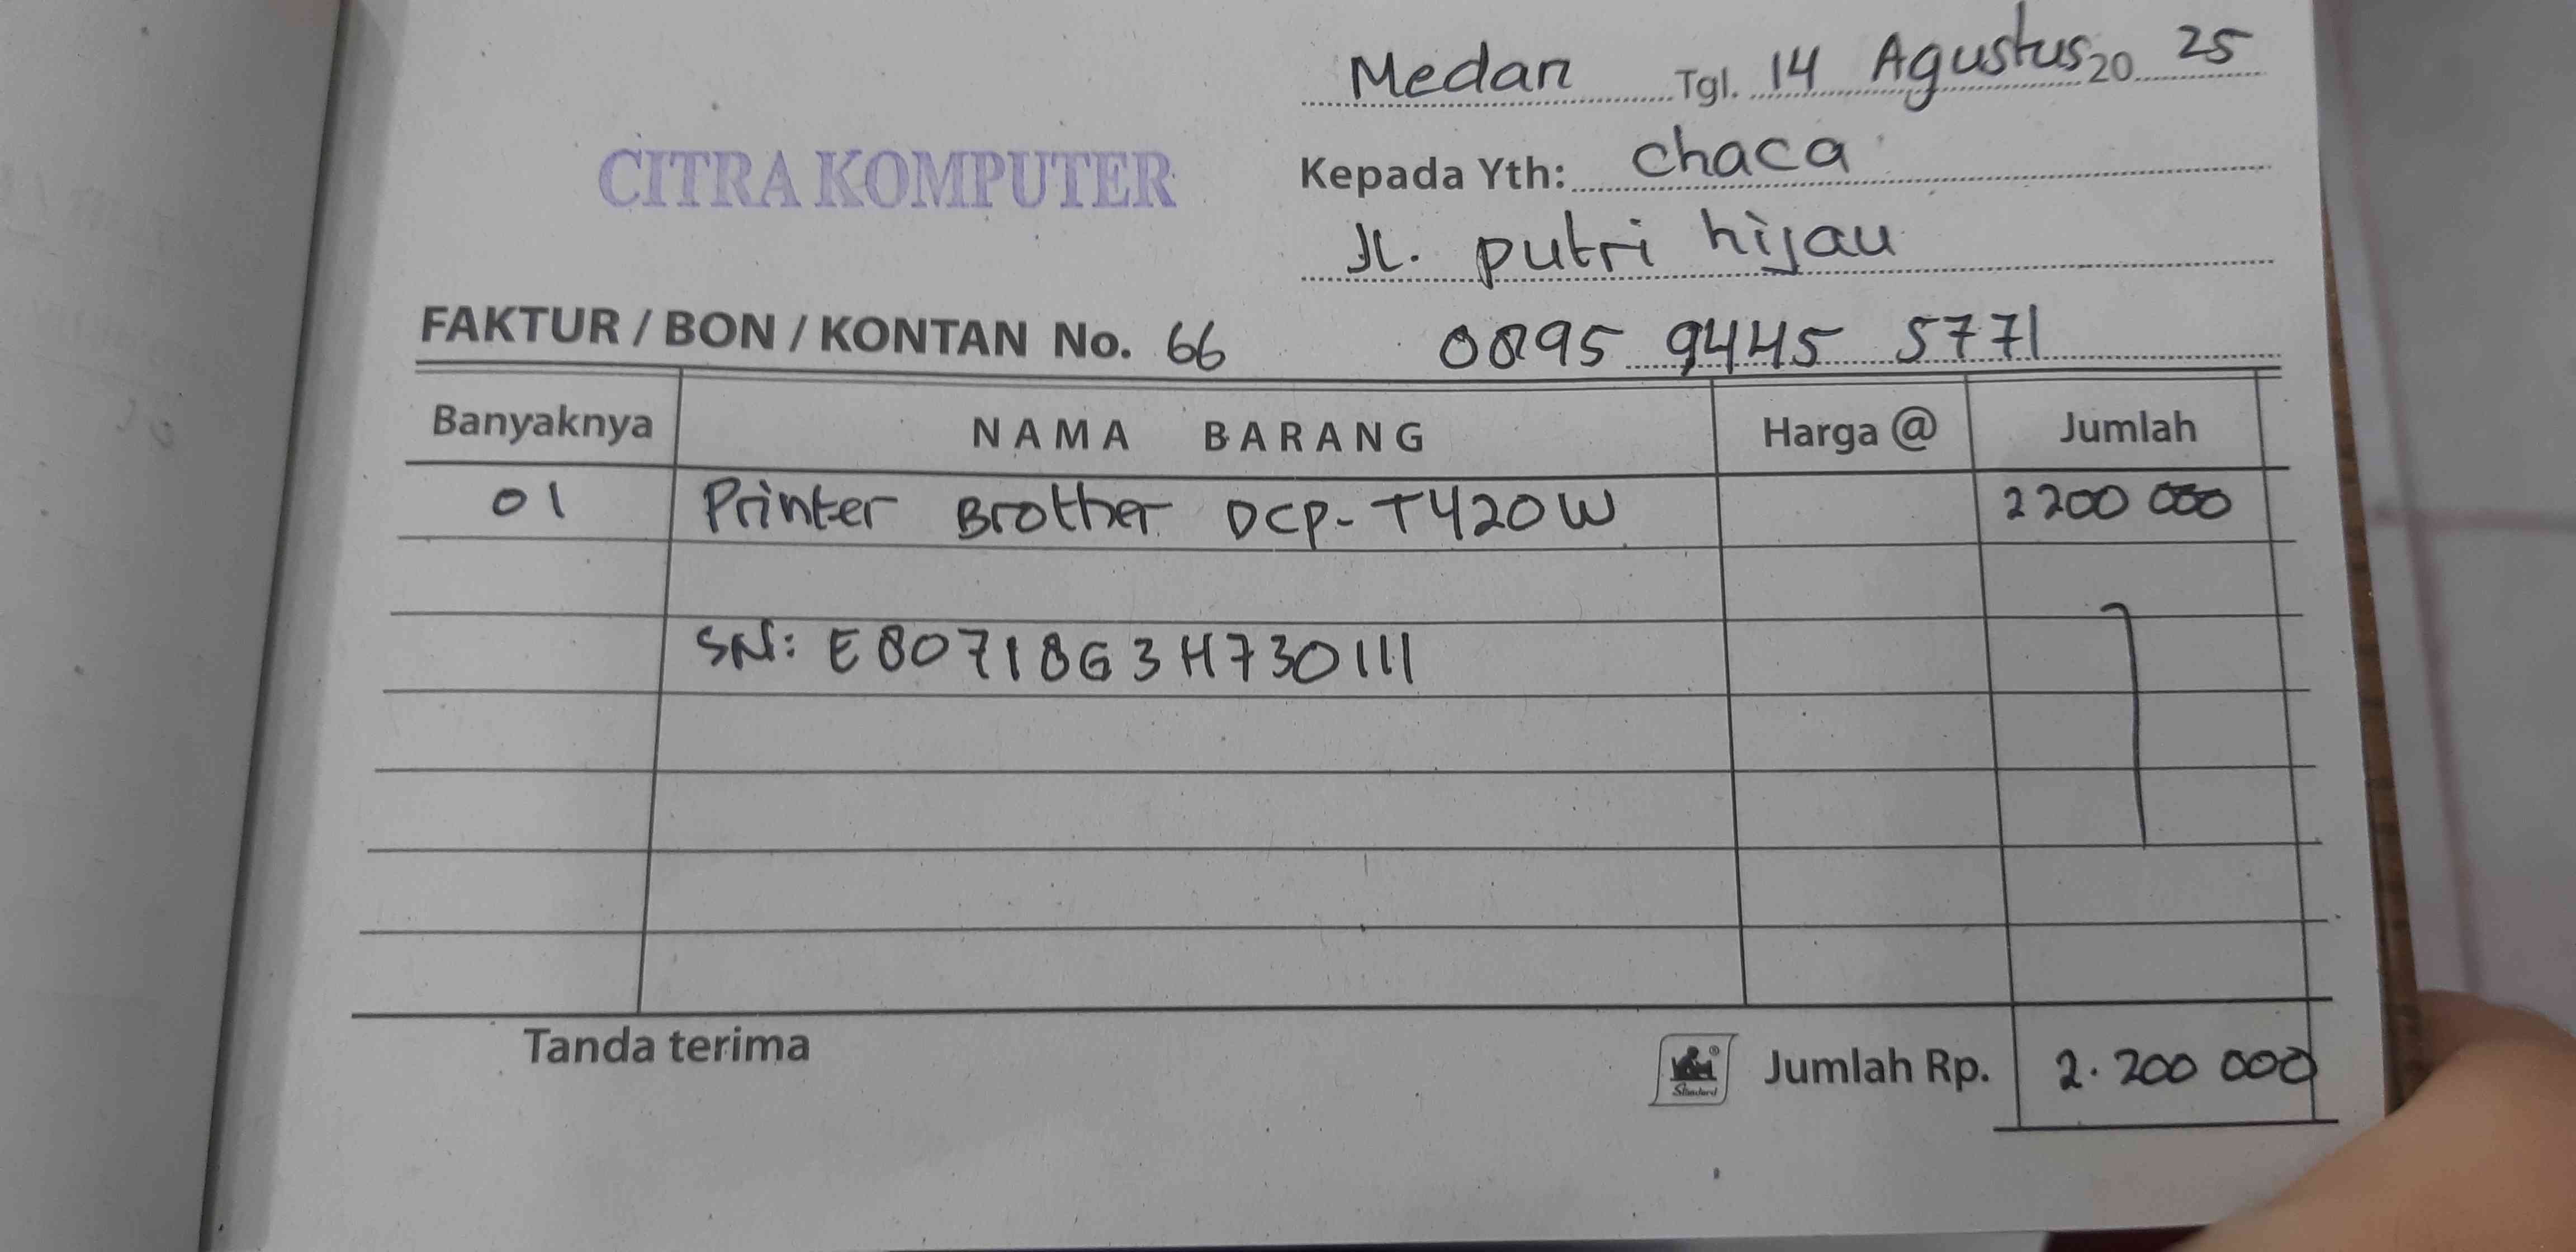 Medan Tgl. 14 Agustus 20 25
CITRA KOMPUTER
Kepada Yth: chaca
Jl. putri hijau
FAKTUR / BON / KONTAN No. 66
0895 9445 5771
Banyaknya NAMA BARANG Harga @ Jumlah
01 Printer Brother DCP-T420W 2200 000
SN: E80718G3H730111
Tanda terima
Standard
Jumlah Rp. 2.200 000